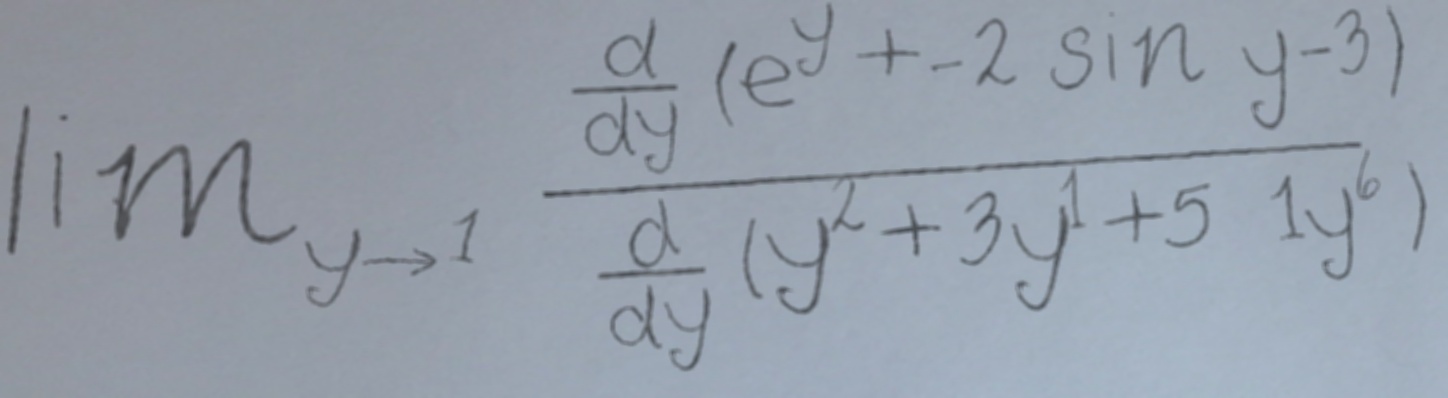 \lim_{y \to 1} \frac{\frac{d}{dy}(e^y + -2 \sin y - 3)}{\frac{d}{dy}(y^2 + 3y^1 + 5 \; 1y^6)}